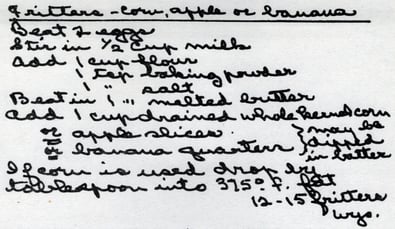 Fritters - corn, apple or banana
Beat 2 eggs
Stir in 1/2 cup milk
Add 1 cup flour
1 tsp baking powder
1 " salt
Beat in 1 " melted butter
Add 1 cup drained whole kernel corn
or apple slices } may be
or banana quarters } dipped
in batter
If corn is used drop by
tablespoon into 375° F. fat
12-15 fritters